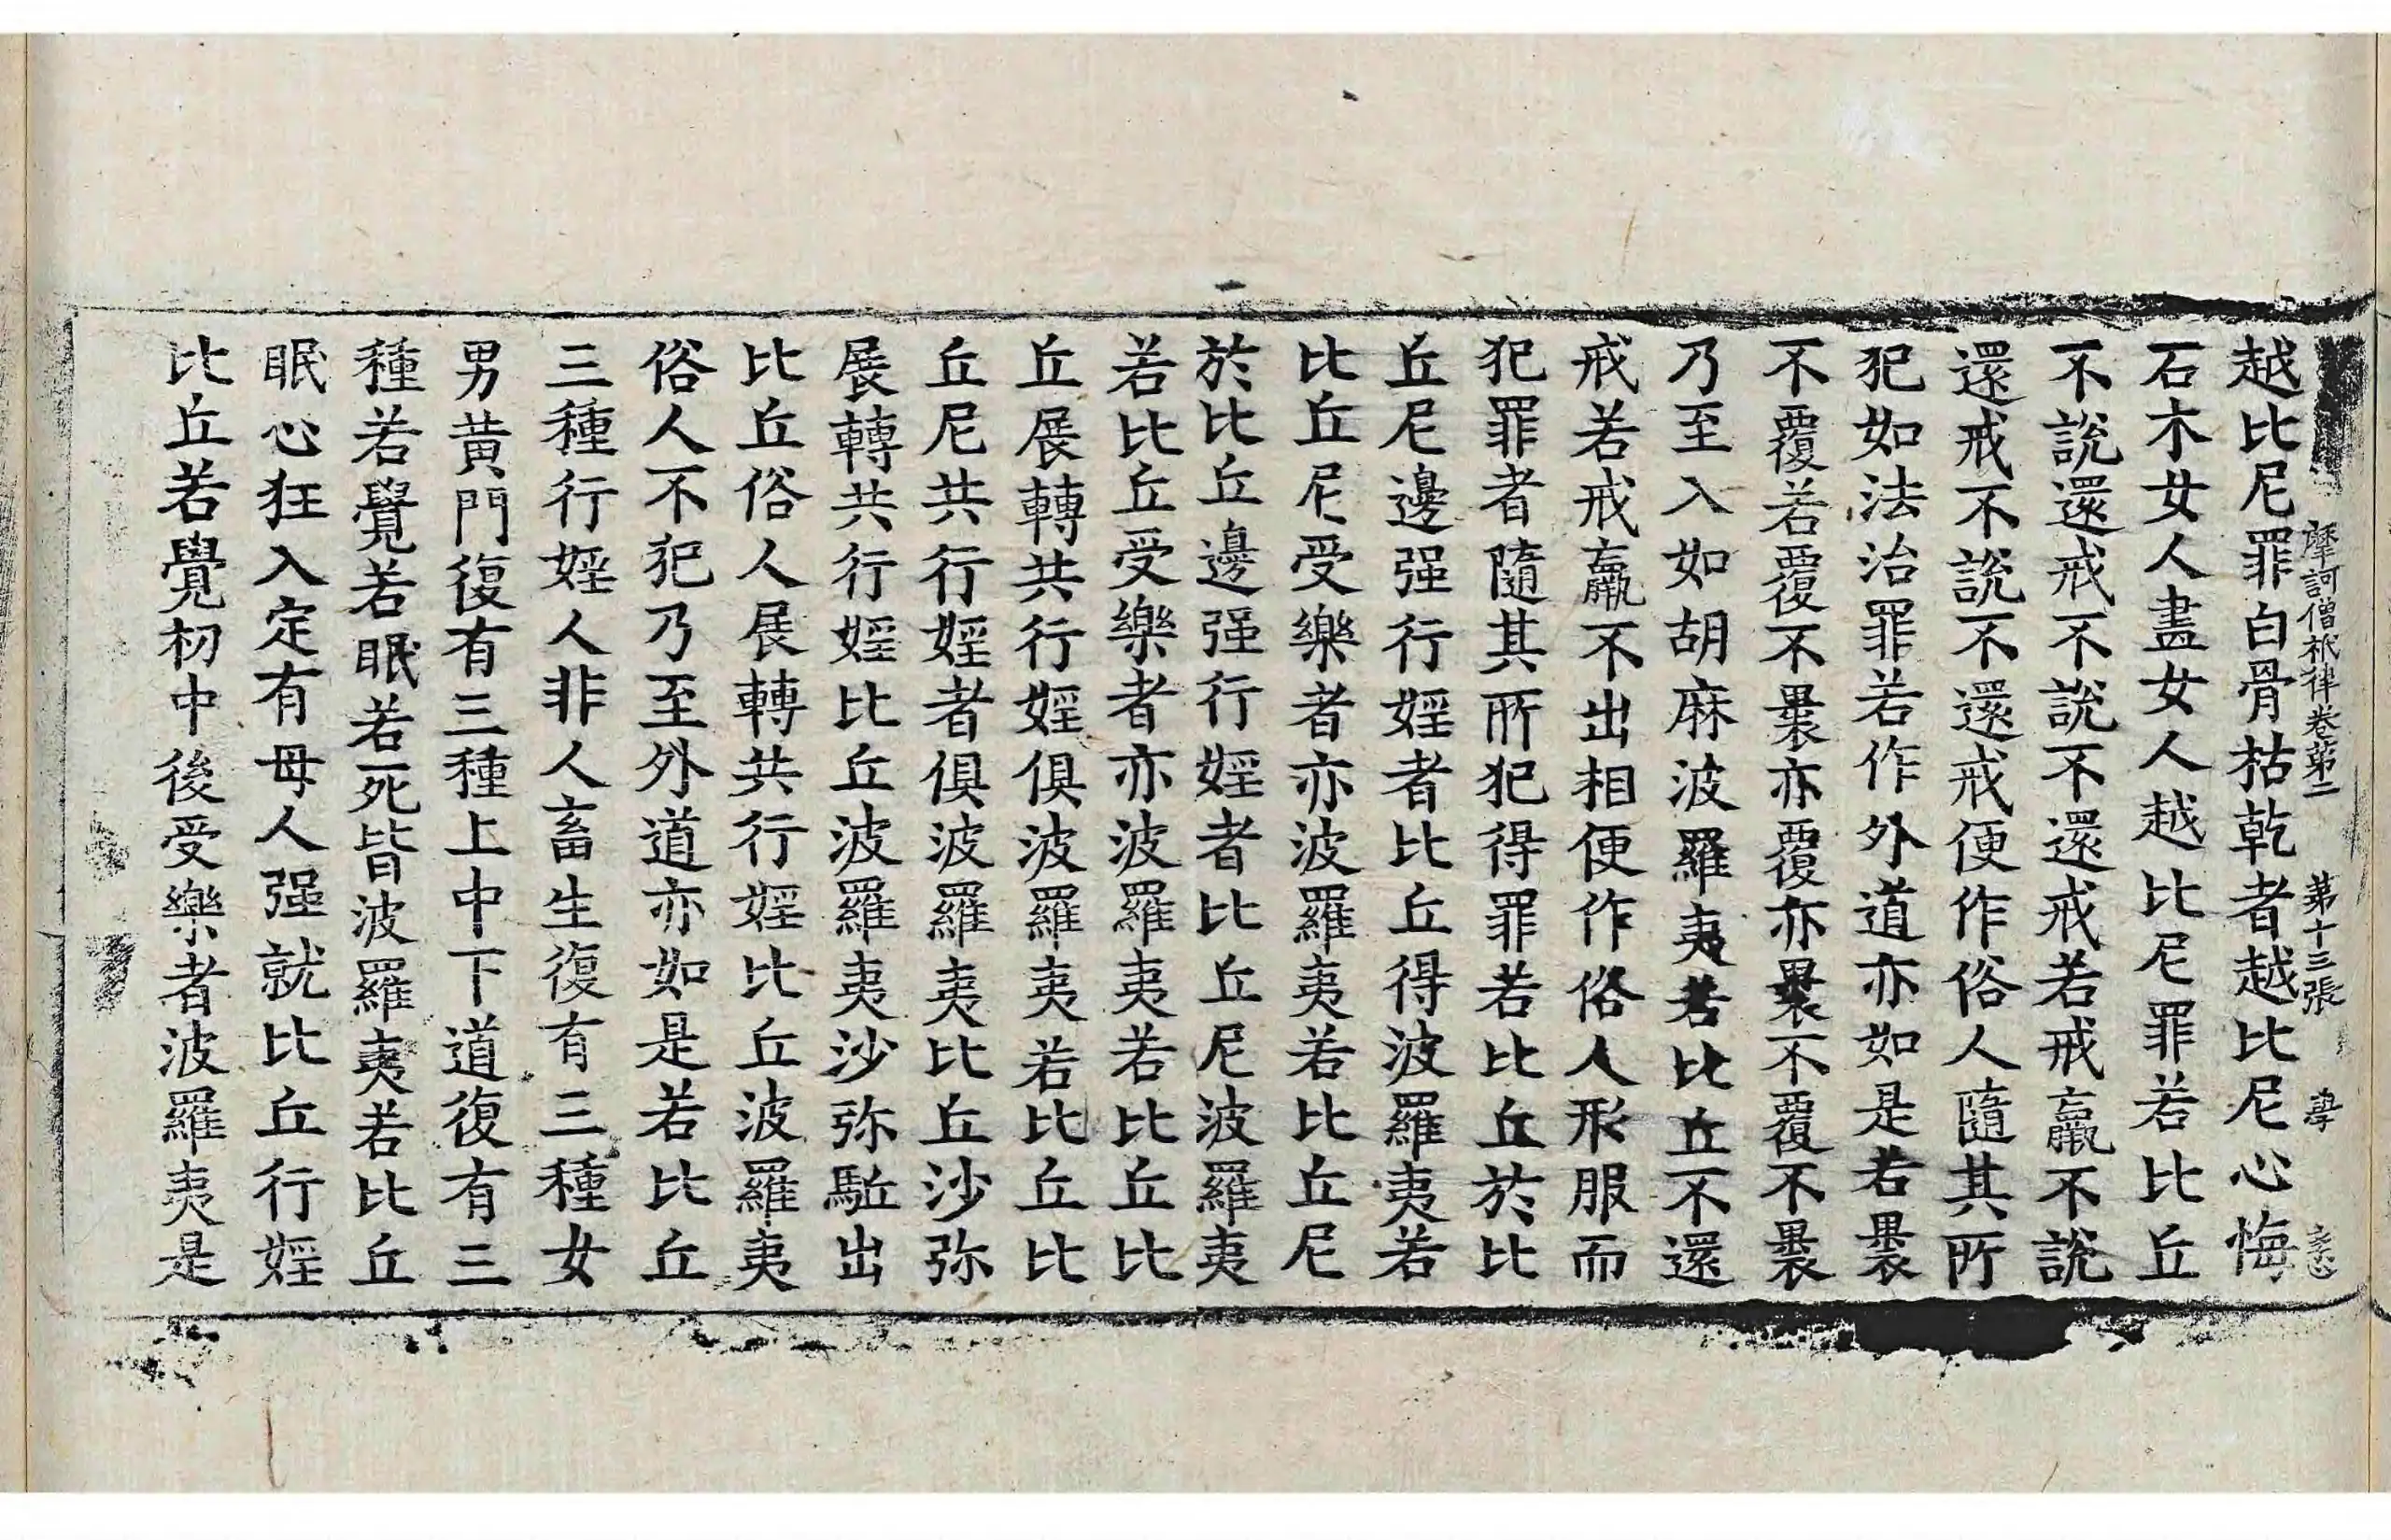 摩訶僧祇律卷第二 第十三張
越比尼罪白骨枯乾者越比尼心悔
石木女人畫女人越比尼罪若比丘
不說還戒不說不還戒若戒羸不說
還戒不說不還戒便作俗人隨其所
犯如法治罪若作外道亦如是若褁
不覆若覆不褁亦覆亦褁不覆不褁
乃至入如胡麻波羅夷若比丘不還
戒若戒羸不出相便作俗人形服而
犯罪者隨其所犯得罪若比丘於比
丘尼邊强行婬者比丘得波羅夷若
比丘尼受樂者亦波羅夷若比丘尼
於比丘邊强行婬者比丘尼波羅夷
若比丘受樂者亦波羅夷若比丘比
丘展轉共行婬俱波羅夷若比丘比
丘尼共行婬者俱波羅夷比丘沙弥
展轉共行婬比丘波羅夷沙弥駈出
比丘俗人展轉共行婬比丘波羅夷
俗人不犯乃至外道亦如是若比丘
三種行婬人非人畜生復有三種女
男黄門復有三種上中下道復有三
種若覺若眠若死皆波羅夷若比丘
眠心狂入定有母人强就比丘行婬
比丘若覺初中後受樂者波羅夷是